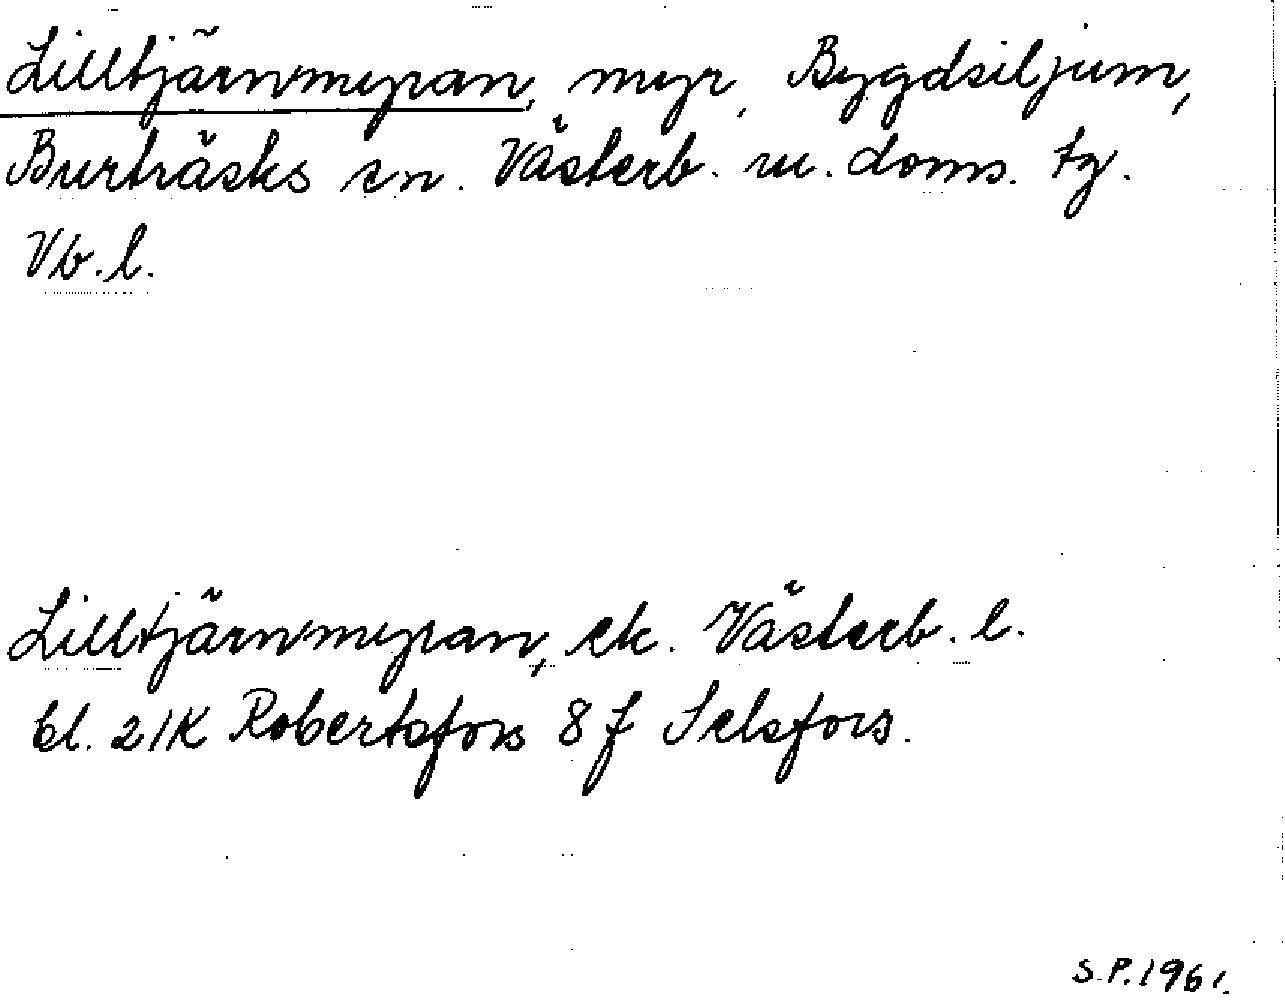 Lilltjärnmyran, myr, Bygdsiljum,
Burträsks sn. Västerb. m. doms. tg.
Vb. l.
Lilltjärnmyran, ek. Västerb. l.
bl. 21K Robertsfors 8f Selsfors.
S.P. 1961.